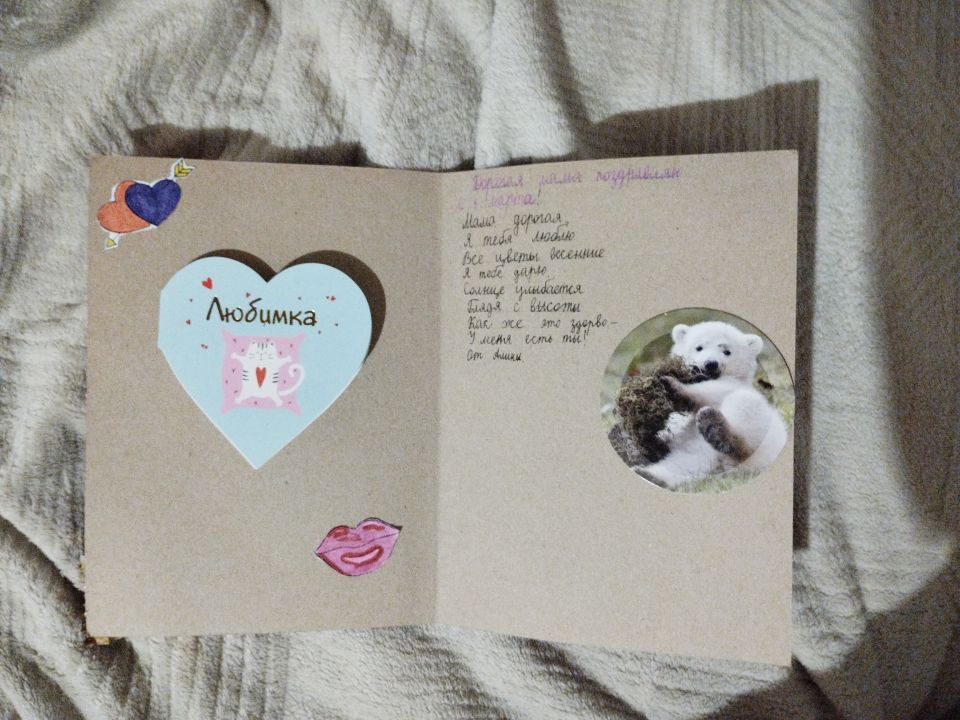 Любимка
Дорогая мама поздравляю
с 8 марта!
Мама дорогая,
Я тебя люблю
Все цветы весенние
Я тебе дарю
Солнце улыбается
Глядя с высоты
Как же это здорво –
У меня есть ты!
От Алины